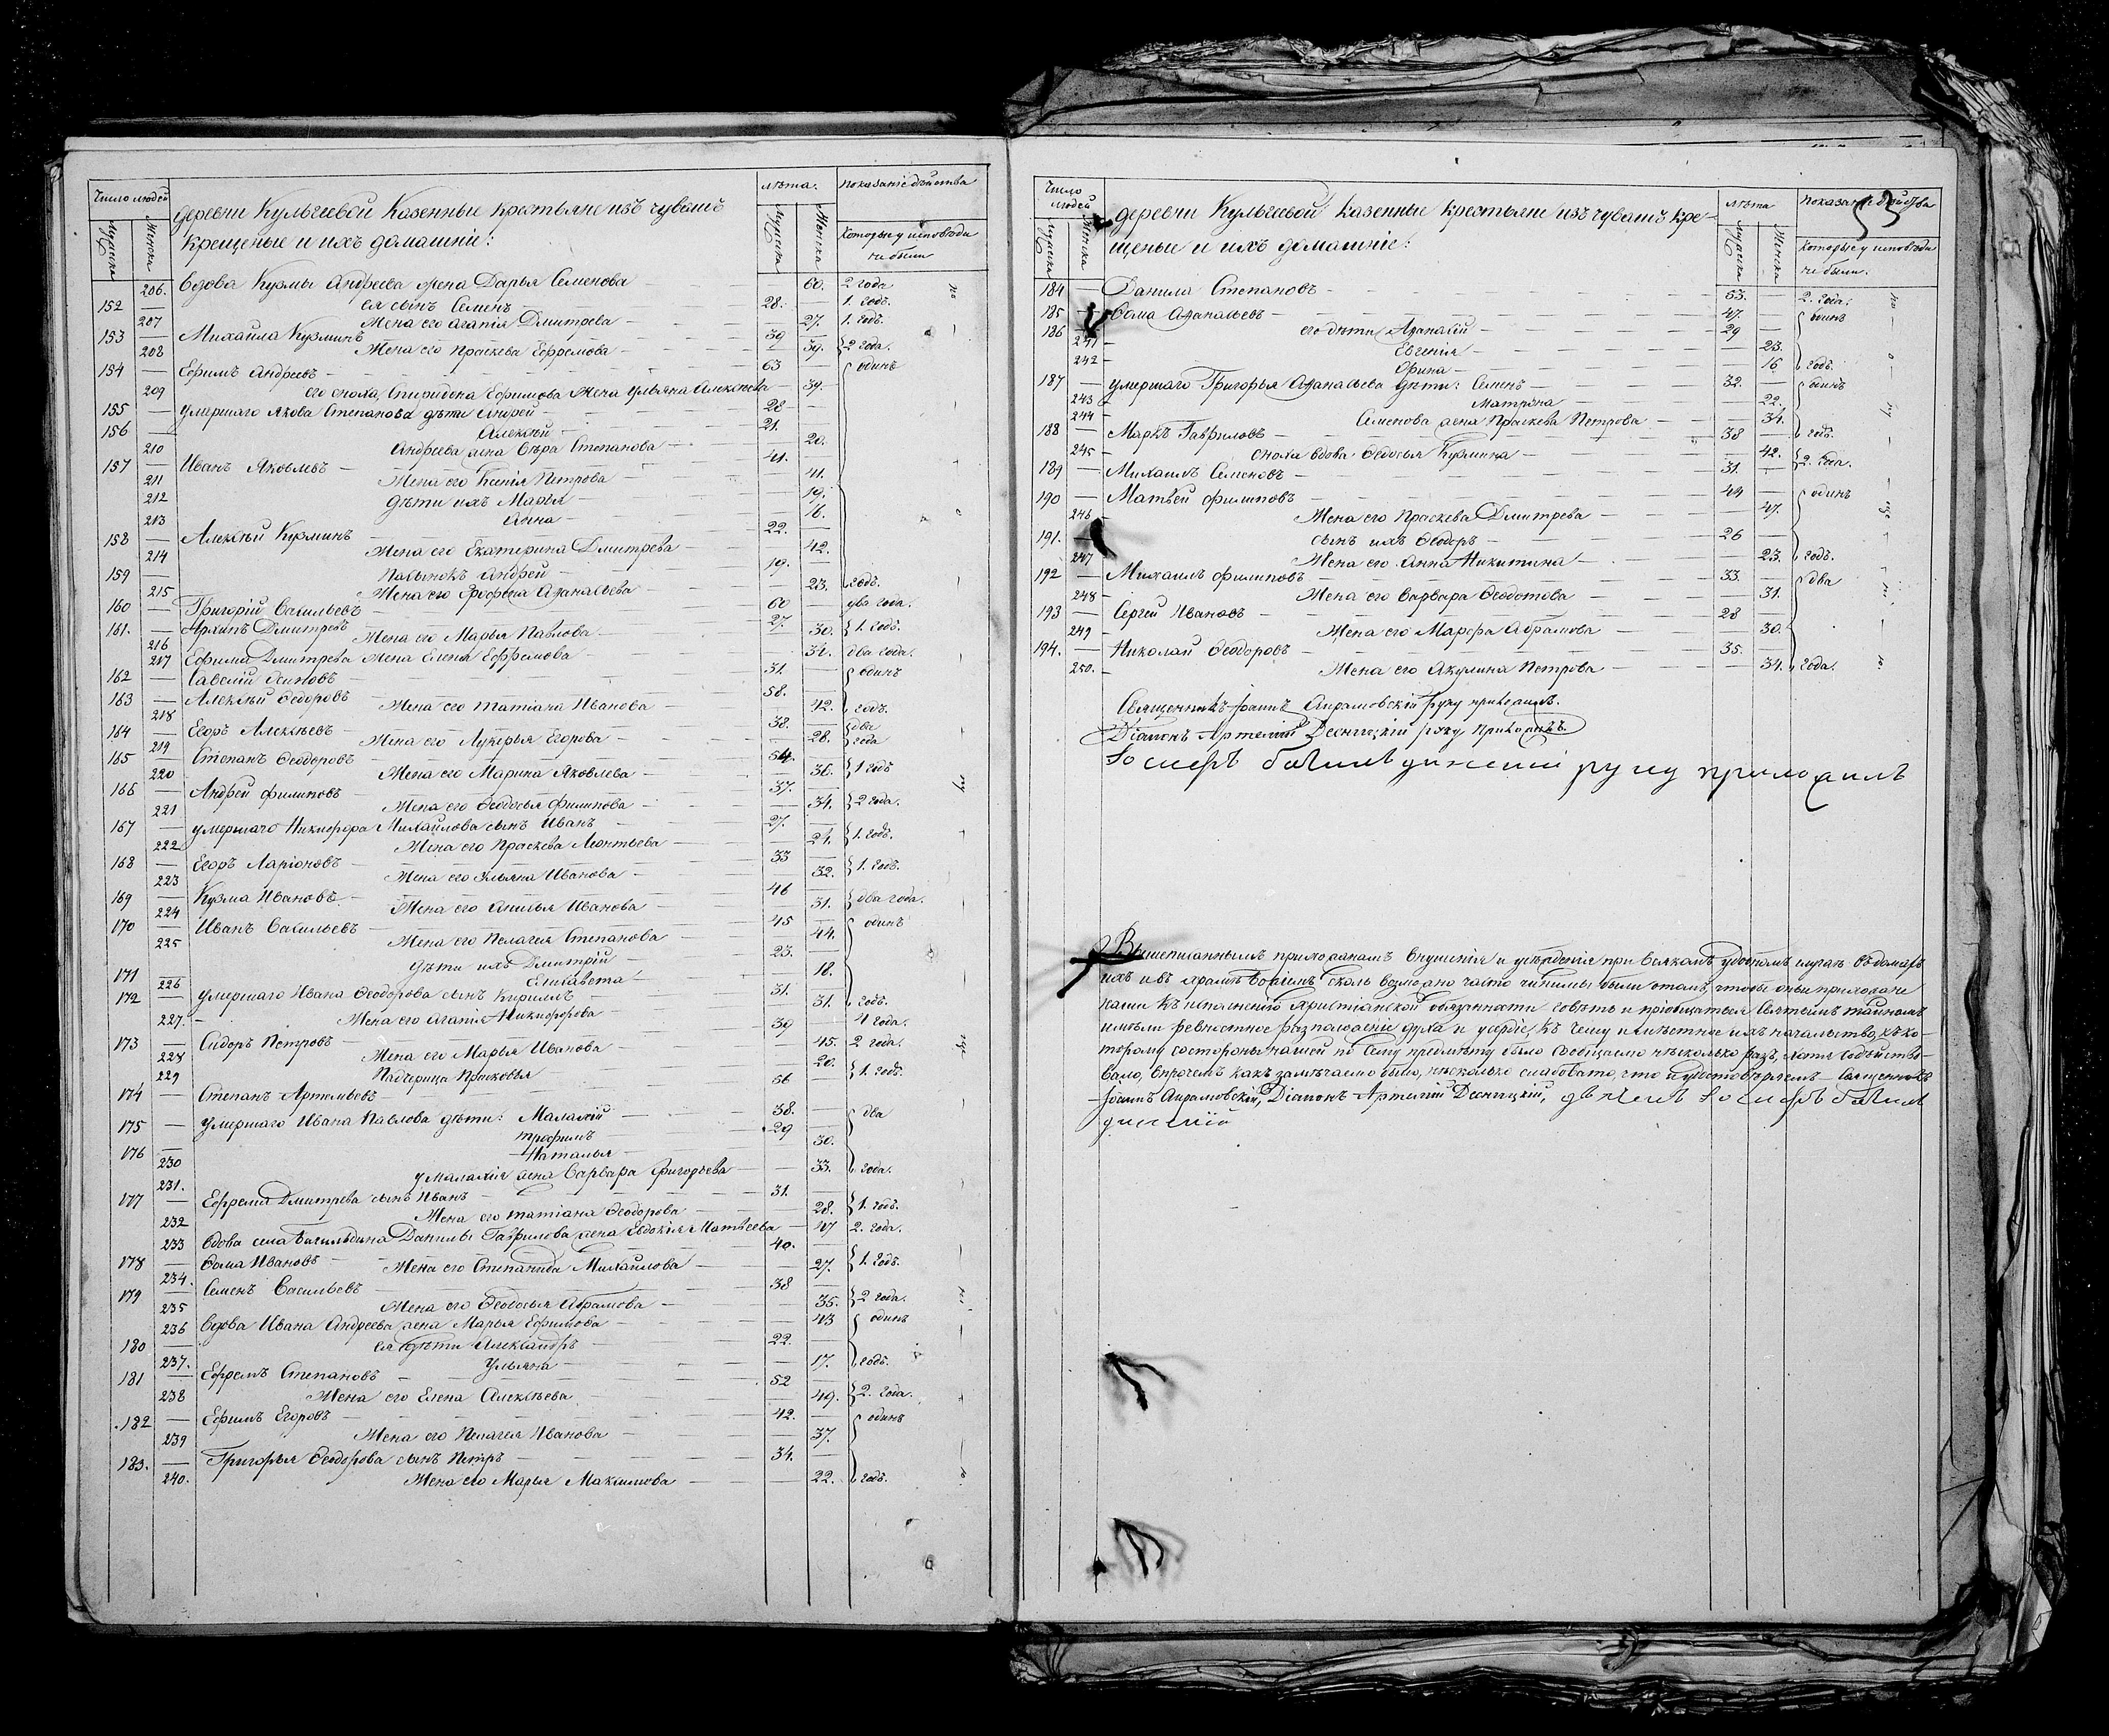 Число людей
Мужеска
Женска
деревни Кульгевой Казенные крестьяне изъ чувашъ
крещеные и ихъ домашніе:
лѣта.
Мужеска
Женска
показаніе дѣйства
Которые у исповѣди
не были
206. Вдова Кузмы Андреева жена Дарья Семенова — 60. 2 года
152 — ея сынъ Семенъ — 28. — 1. годъ.
207 Жена его Агапія Дмитрева — 27. 1. годъ.
153 — Михаила Кузминъ — 39 —
208 Жена его Праскева Ефремова — 39. 2 года.
154 — Ефимъ Андреевъ — 63 — одинъ
209 его сноха, Спиридона Ефимова Жена Ульяна Алексѣева — 39.
155 — умершаго Якова Степанова дѣти Андрей — 28 —
156 — Алексѣй — 21. —
210 Андреева жена Вѣра Степанова — 20.
157 — Иванъ Яковлевъ — 41. —
211 Жена его Ксенія Петрова — 41.
212 дѣти ихъ Марья — 19.
213 Анна — 16.
158 — Алексѣй Кузминъ — 22. —
214 Жена его Екатерина Дмитрева — 42.
159 — Пасынокъ Андрей — 19. —
215 Жена его Ефросинья Афанасьева — 23. годъ.
160 — Григорій Васильевъ — 60 два года.
161. — Архипъ Дмитревъ — 27. —
216 Жена его Марья Павлова — 30. 1. годъ.
217 Ефима Дмитрева Жена Елена Ефремова — 31. два года.
162 — Савелій Осиповъ — 31. — одинъ
163 — Алексѣй Ѳедоровъ — 58. —
218 Жена его Татіана Иванова — 42. годъ.
164 — Егоръ Алексѣевъ — 38. — два
219 Жена его Лукерья Егорова — 28. года
165 — Степанъ Ѳеодоровъ — 54. —
220 Жена его Марина Яковлева — 36. 1 годъ
166 — Андрей Филиповъ — 37. —
221 Жена его Ѳеодосья Филипова — 34. 2 года.
167 — умершаго Никифора Михайлова сынъ Иванъ — 27. —
222 Жена его Праскева Леонтьева — 24. 1. годъ.
168 — Егоръ Ларіоновъ — 33 —
223 Жена его Ульяна Иванова — 32. 1. годъ.
169 — Кузма Ивановъ — 46 —
224 Жена его Анисья Иванова — 31. два года.
170 — Иванъ Васильевъ — 45 — одинъ
225 Жена его Пелагея Степанова — 44.
171 — дѣти ихъ Дмитрій — 23. —
226 Елисавета — 18.
172 — умершаго Ивана Ѳеодорова сынъ Кирилъ — 31. —
227. Жена его Агапія Никифорова — 31. годъ.
173 — Сидоръ Петровъ — 39 — 4 года.
228 Жена его Марья Иванова — 45. 2 года.
229 Падчерица Прасковья — 20.
174 — Степанъ Артемьевъ — 56 — 1. годъ.
175 — умершаго Ивана Павлова дѣти: Малахій — 38. — два
176 — Трофимъ — 29 —
230 Наталья — 30.
231. у Малахія жена Варвара Григорьева — 33. года.
177 — Ефрема Дмитрева сынъ Иванъ — 31. —
232 Жена его Татіана Ѳеодорова — 28. 1. годъ.
233 Вдова села Багильдина Данилы Гаврилова жена Евдокія Матвѣева — 47 2. года.
178 — Ѳома Ивановъ — 40. —
234. Жена его Степанида Михайлова — 27. 1. годъ.
179 — Семенъ Васильевъ — 38 —
235 Жена его Ѳеодосья Абрамова — 35. 2 года.
236 Вдова Ивана Андреева жена Марья Ефимова — 43 одинъ
180 — ея дѣти Александръ — 22. —
237. Ульяна — 17. годъ.
181 — Ефремъ Степановъ — 52 —
238 Жена его Елена Алексѣева — 49. 2. года.
182 — Ефимъ Егоровъ — 42. — одинъ
239 Жена его Пелагея Иванова — 37.
183. — Григорья Ѳеодорова сынъ Петръ — 34. —
240. Жена его Марья Максимова — 22. годъ.
Число людей
Мужеска
Женска
деревни Кульгевой Казенные крестьяне изъ чувашъ кре-
щеные и ихъ домашніе:
лѣта
Мужеска
Женска
показаніе дѣйства
которые у исповѣди
не были.
184 — Данила Степановъ — 53. — 2. года.
185 — Ѳома Афанасьевъ — 47. — одинъ
186 его дѣти Афанасій — 29 —
241 Евгенія — 23.
242 Орина — 16 годъ.
187 — умершаго Григорья Афанасьева дѣти: Семенъ — 32. — одинъ
243 Матрона — 22.
244 Семенова жена Праскева Петрова — 34.
188 — Маркъ Гавриловъ — 38 — годъ.
245 сноха вдова Ѳедосья Кузмина — 42. 2. года.
189 — Михаилъ Семеновъ — 31. —
190 — Матвей Филиповъ — 49 — одинъ
246 Жена его Праскева Дмитрева — 47.
191. — сынъ ихъ Ѳеодоръ — 26 —
247 Жена его Анна Никитина — 23. годъ.
192 — Михаилъ Филиповъ — 33. — два
248 Жена его Варвара Ѳеодотова — 31.
193 — Сергей Ивановъ — 28 —
249 Жена его Марфа Абрамова — 30.
194. — Николай Ѳеодоровъ — 35. —
250. Жена его Акулина Петрова — 34. года.
Священникъ Іоаннъ руку приложилъ.
Діаконъ Артемій Десницкій руку приложилъ.
руку приложилъ
Вышеписаннымъ прихожанамъ внушенія и убѣжденія при всякомъ удобномъ случаѣ въ домахъ
ихъ и въ храмѣ Божіемъ сколь возможно часто чинимы были о томъ, чтобы оные прихожане
наши къ исполненію христіанской обязанности говѣть и пріобщаться Святымъ Тайнамъ
имѣли ревностное разположеніе духа и усердіе, къ чему и мѣстное ихъ начальство, къ ко-
торому со стороны нашей по сему предмѣту было сообщаемо нѣсколько разъ, хотя содѣйство-
вало, впрочемъ какъ замѣчаемо было, нѣсколько слабовато, что и удостовѣряемъ — Священникъ
Іоаннъ Діаконъ Артемій Десницкій,